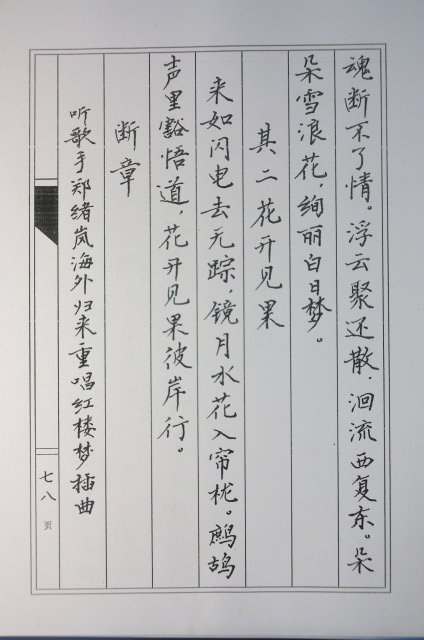 魂断不了情。浮云聚还散，洄流西复东。朵
朵雪浪花，绚丽白日梦。
其二花开见果
来如闪电去无踪，镜月水花入帘栊。鹧鸪
声里豁悟道，花开见果彼岸行。
断章
听歌手郑绪岚海外归来重唱红楼梦插曲
七八页